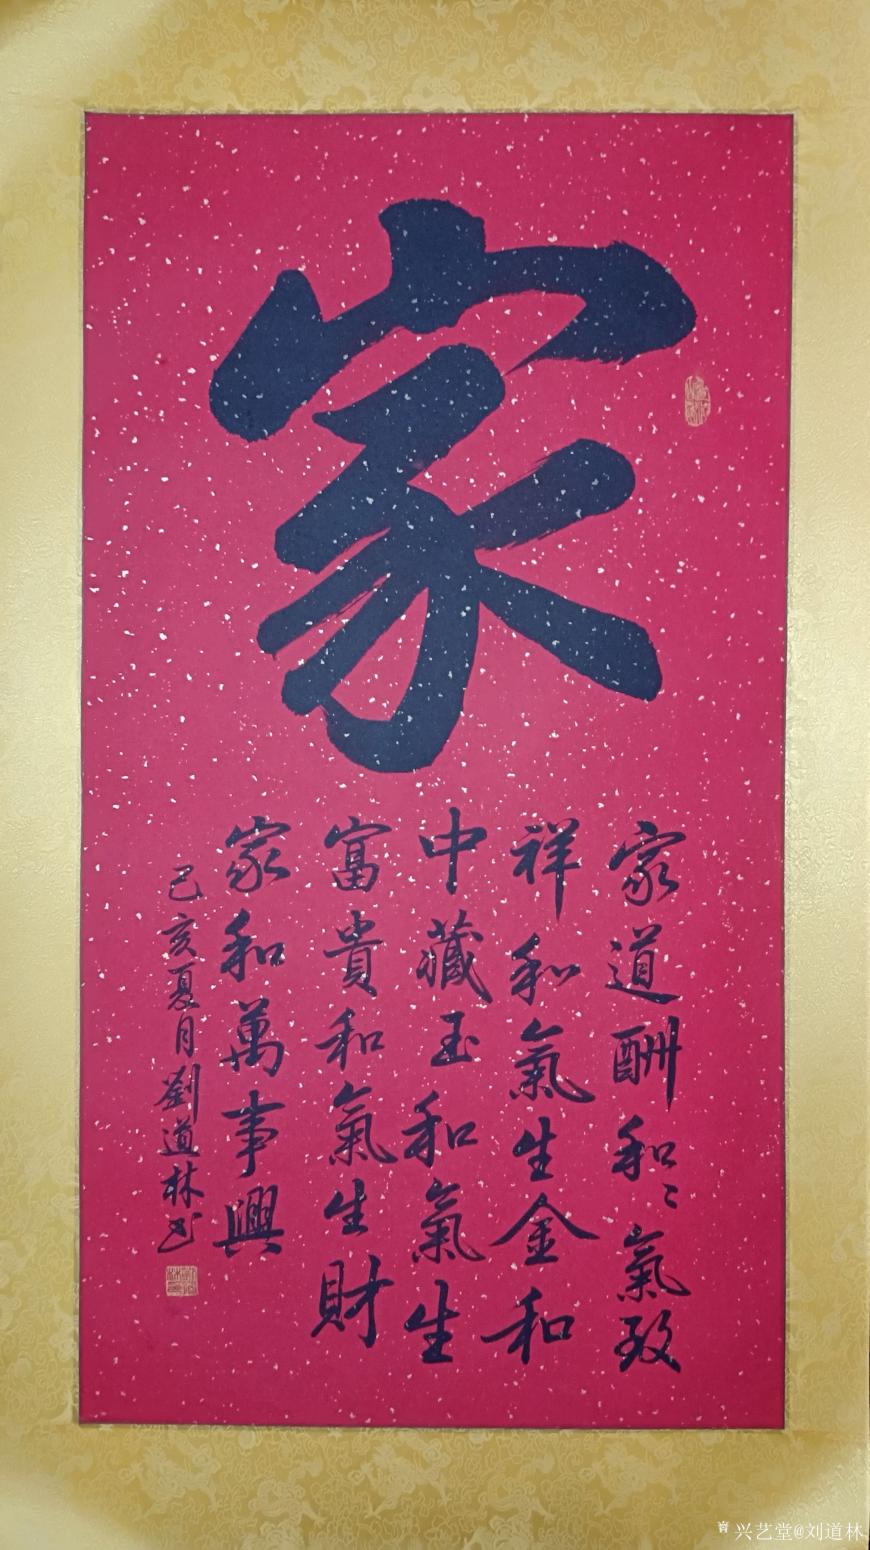 家
家道酬和〻氣致
祥和氣生金和
中藏玉和氣生
富貴和氣生財
家和萬事興
己亥夏月劉道林书
兴艺堂@刘道林